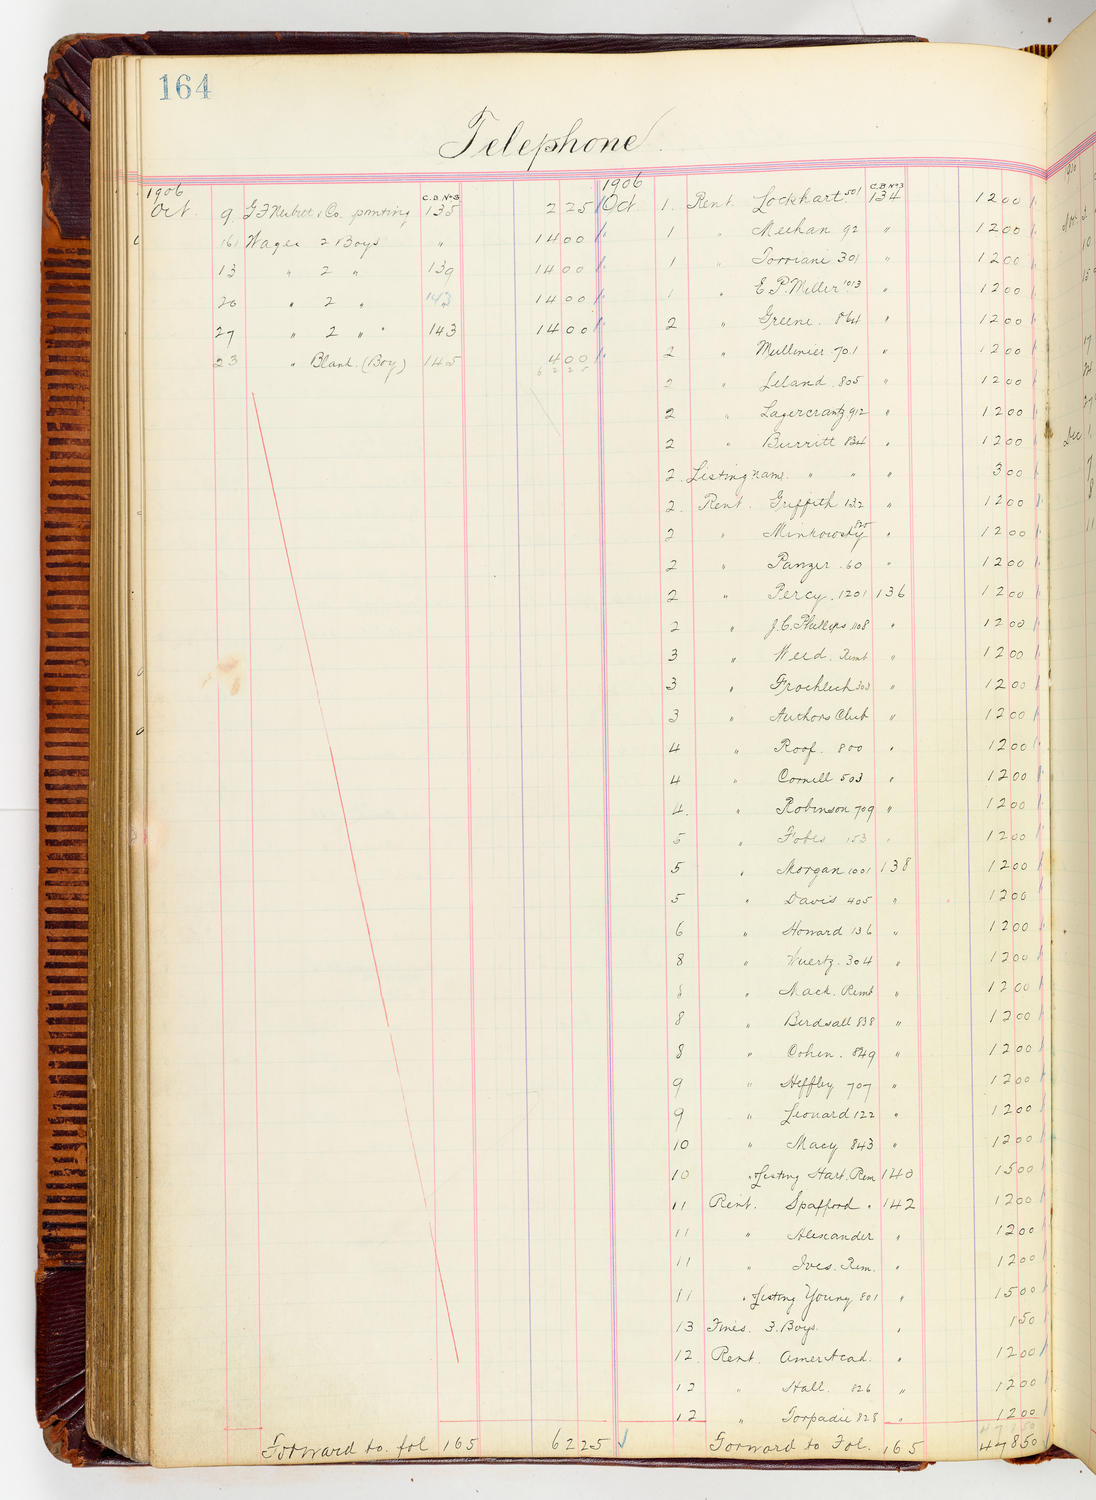 164
Telephone
1906
C.B. No 3
Oct. 9 G F Nesbitt & Co. printing 135 2 25
16 Wages 2 Boys " 14 00
13 " 2 " 139 14 00
20 " 2 " 143 14 00
27 " 2 " " 143 14 00
23 " Blank (Boy) 145 4 00
62 25
Forward to fol 165 62 25
1906
C.B. No 3
Oct 1. Rent Lockhart 501 134 12 00
1 " Meehan 92 " 12 00
1 " Torriani 301 " 12 00
1 " E. P. Miller 1013 " 12 00
2 " Greene. 864 " 12 00
2 " Mullinier 701 " 12 00
2 " Leland. 805 " 12 00
2 " Lagercrantz 912 " 12 00
2 " Burritt 834 " 12 00
2. Listing nam. " " " 3 00
2. Rent. Griffith 132 " 12 00
2 " Minkowsky 825 " 12 00
2 " Panzer. 60 " 12 00
2 " Percy. 1201 136 12 00
2 " J. C. Phillips 1108 " 12 00
3 " Weed. Remt " 12 00
3 " Froehlich 303 " 12 00
3 " Authors Club " 12 00
4 " Roof. 800 " 12 00
4 " Cornell 503 " 12 00
4. " Robinson 709 " 12 00
5 " Fobes 153 " 12 00
5 " Morgan 1001 138 12 00
5 " Davis 405 " 12 00
6 " Howard 136 " 12 00
8 " Wuertz. 304 " 12 00
8 " Mack. Remt " 12 00
8 " Birdsall 838 " 12 00
8 " Cohen. 849 " 12 00
9 " Heffley 707 " 12 00
9 " Leonard 122 " 12 00
10 " Macy 843 " 12 00
10 " Listing Hart. Rem 140 15 00
11 Rent. Spafford " 142 12 00
11 " Alexander " 12 00
11 " Ives. Rem. " 12 00
11 " Listing Young 801 " 15 00
13 Fines. 3. Boys. " 1 50
12. Rent. Amer Acad. " 12 00
12 " Hall. 826 " 12 00
12 " Torpadie 828 " 12 00
Forward to Fol. 165 478 50